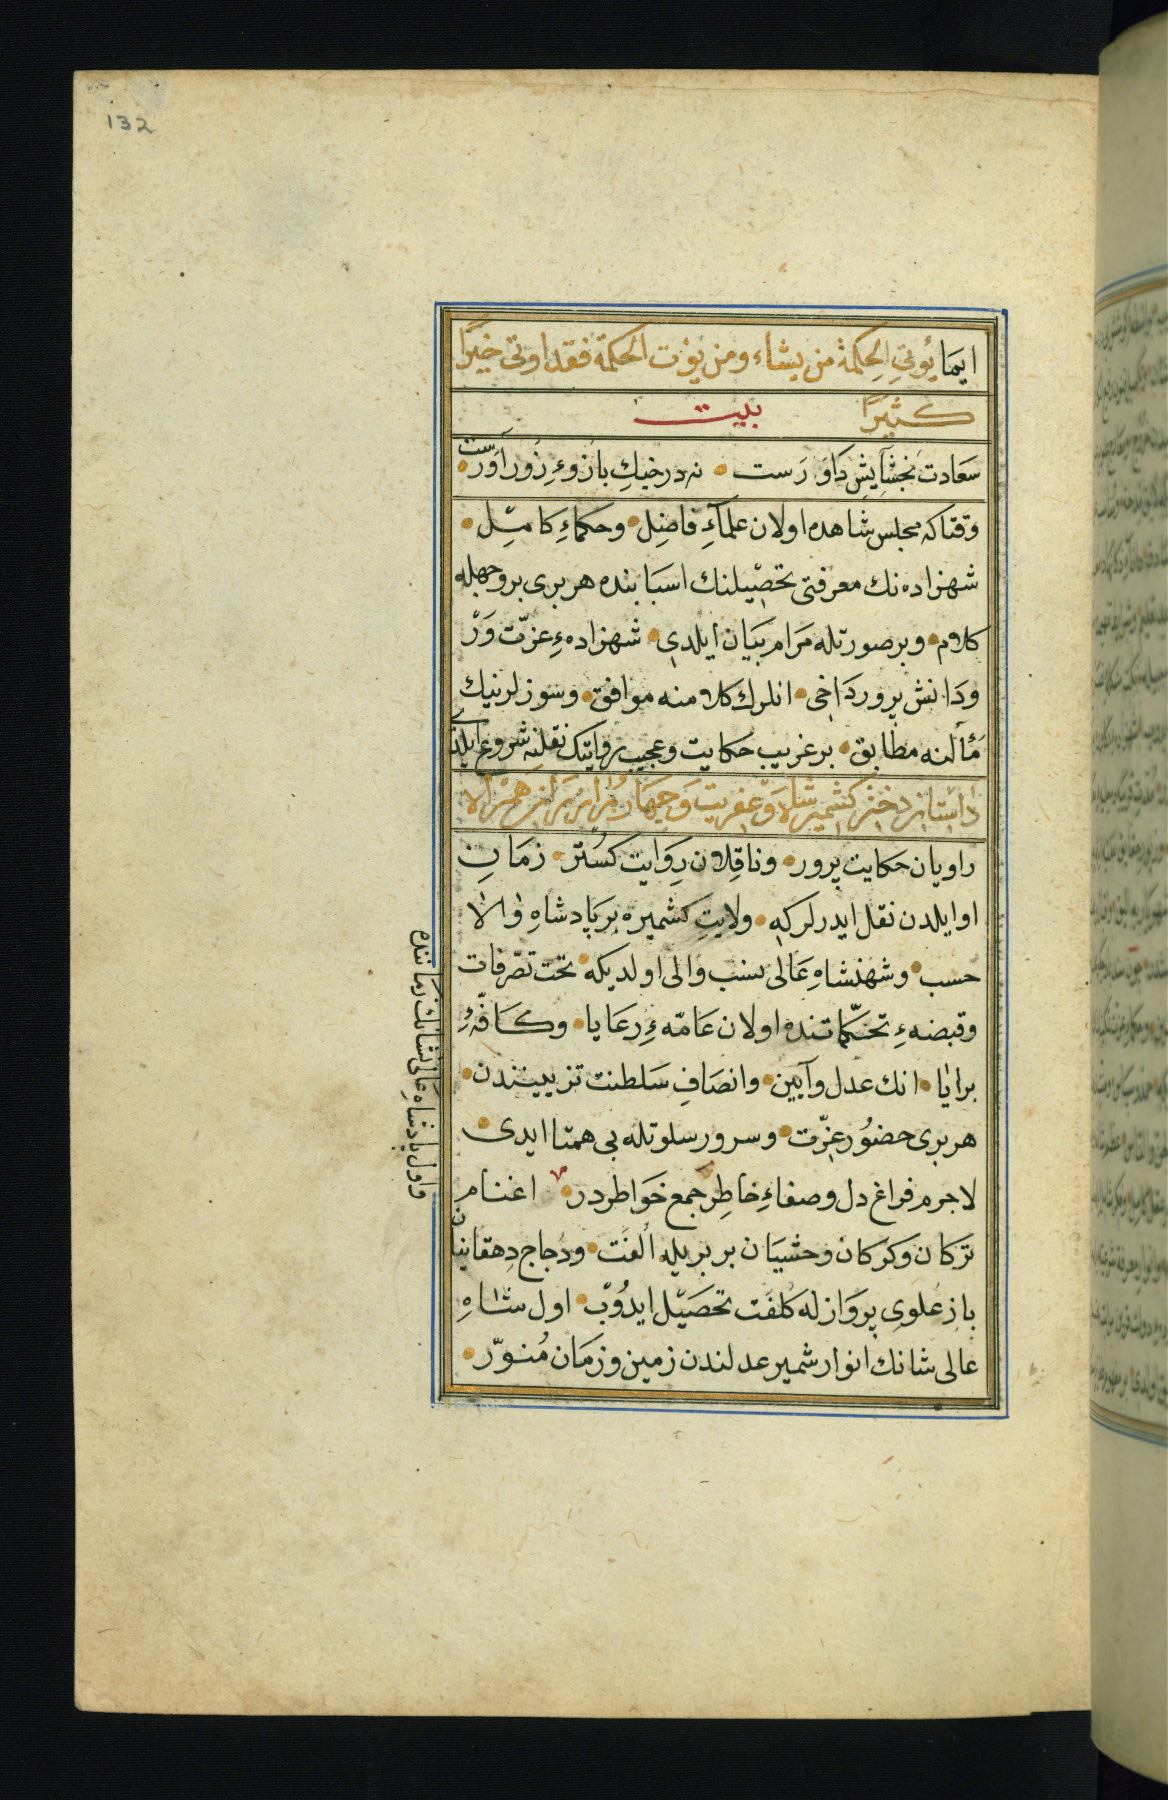 132
ایما یؤتي الحكمة من یشاء ومن یؤت الحكمة فقد اوتی خیرًا
كثیرًا بیت
سَعادت بَخشآیشِ دَاوَرَست نه در خیك بازوءِ زور آوَرست
وقتاكه مجلس شاهده اولان علمآءِ فاضِل وحكماءِ كامِل
شهزاده نك معرفتی تحصیلنك اسبابنده هر بری بر وجهله
كلام وبر صورتله مَرام بَیان ایلدی شهزادهءِ عزّت وَرْ
ودَانش پرور دَاخی انلرك كلامنه موافق وسوزلرینك
مَأٰلنه مطابق بر غریب حكایت وعجیب روایتك نقلنه شروع ایلدی
داستان دختر كشمیر شاه وَ عفریت وَ چهار
راویان حكایت پرور وناقِلان رِوَایت كُستر زمَانِ
اوایلدن نقل ایدرلر كه ولایتِ كشمیره بر پادشاهِ وٰالا
حسب وشهنشاهِ عَالی نسب والی اولدیكه تحت تصرّفات
وقبضهءِ تحكّماتنده اولان عامّهءِ رعَایا وكافّهءِ
برایٰا انك عدل وآیین وانصَافِ سَلطنت تزیینندن
هر بری حضُور عزّت وسرور سلوتله بی همتا ایدی
لاجرم فراغ دل وصفاءِ خاطِر جمع خَواطر در اغنام
تركان وكركان وحشیَان بربریله اُلفَت ودجاج دِهقانیان
بازِ عُلوی پروَازله كُلفَت تحصَیل ایدُوْب اول شَاهِ
عالی شانك انوار شمیر عدلندن زمین وزمَان مُنوّر
واول پادشاهِ عالیشانك زمَاننده